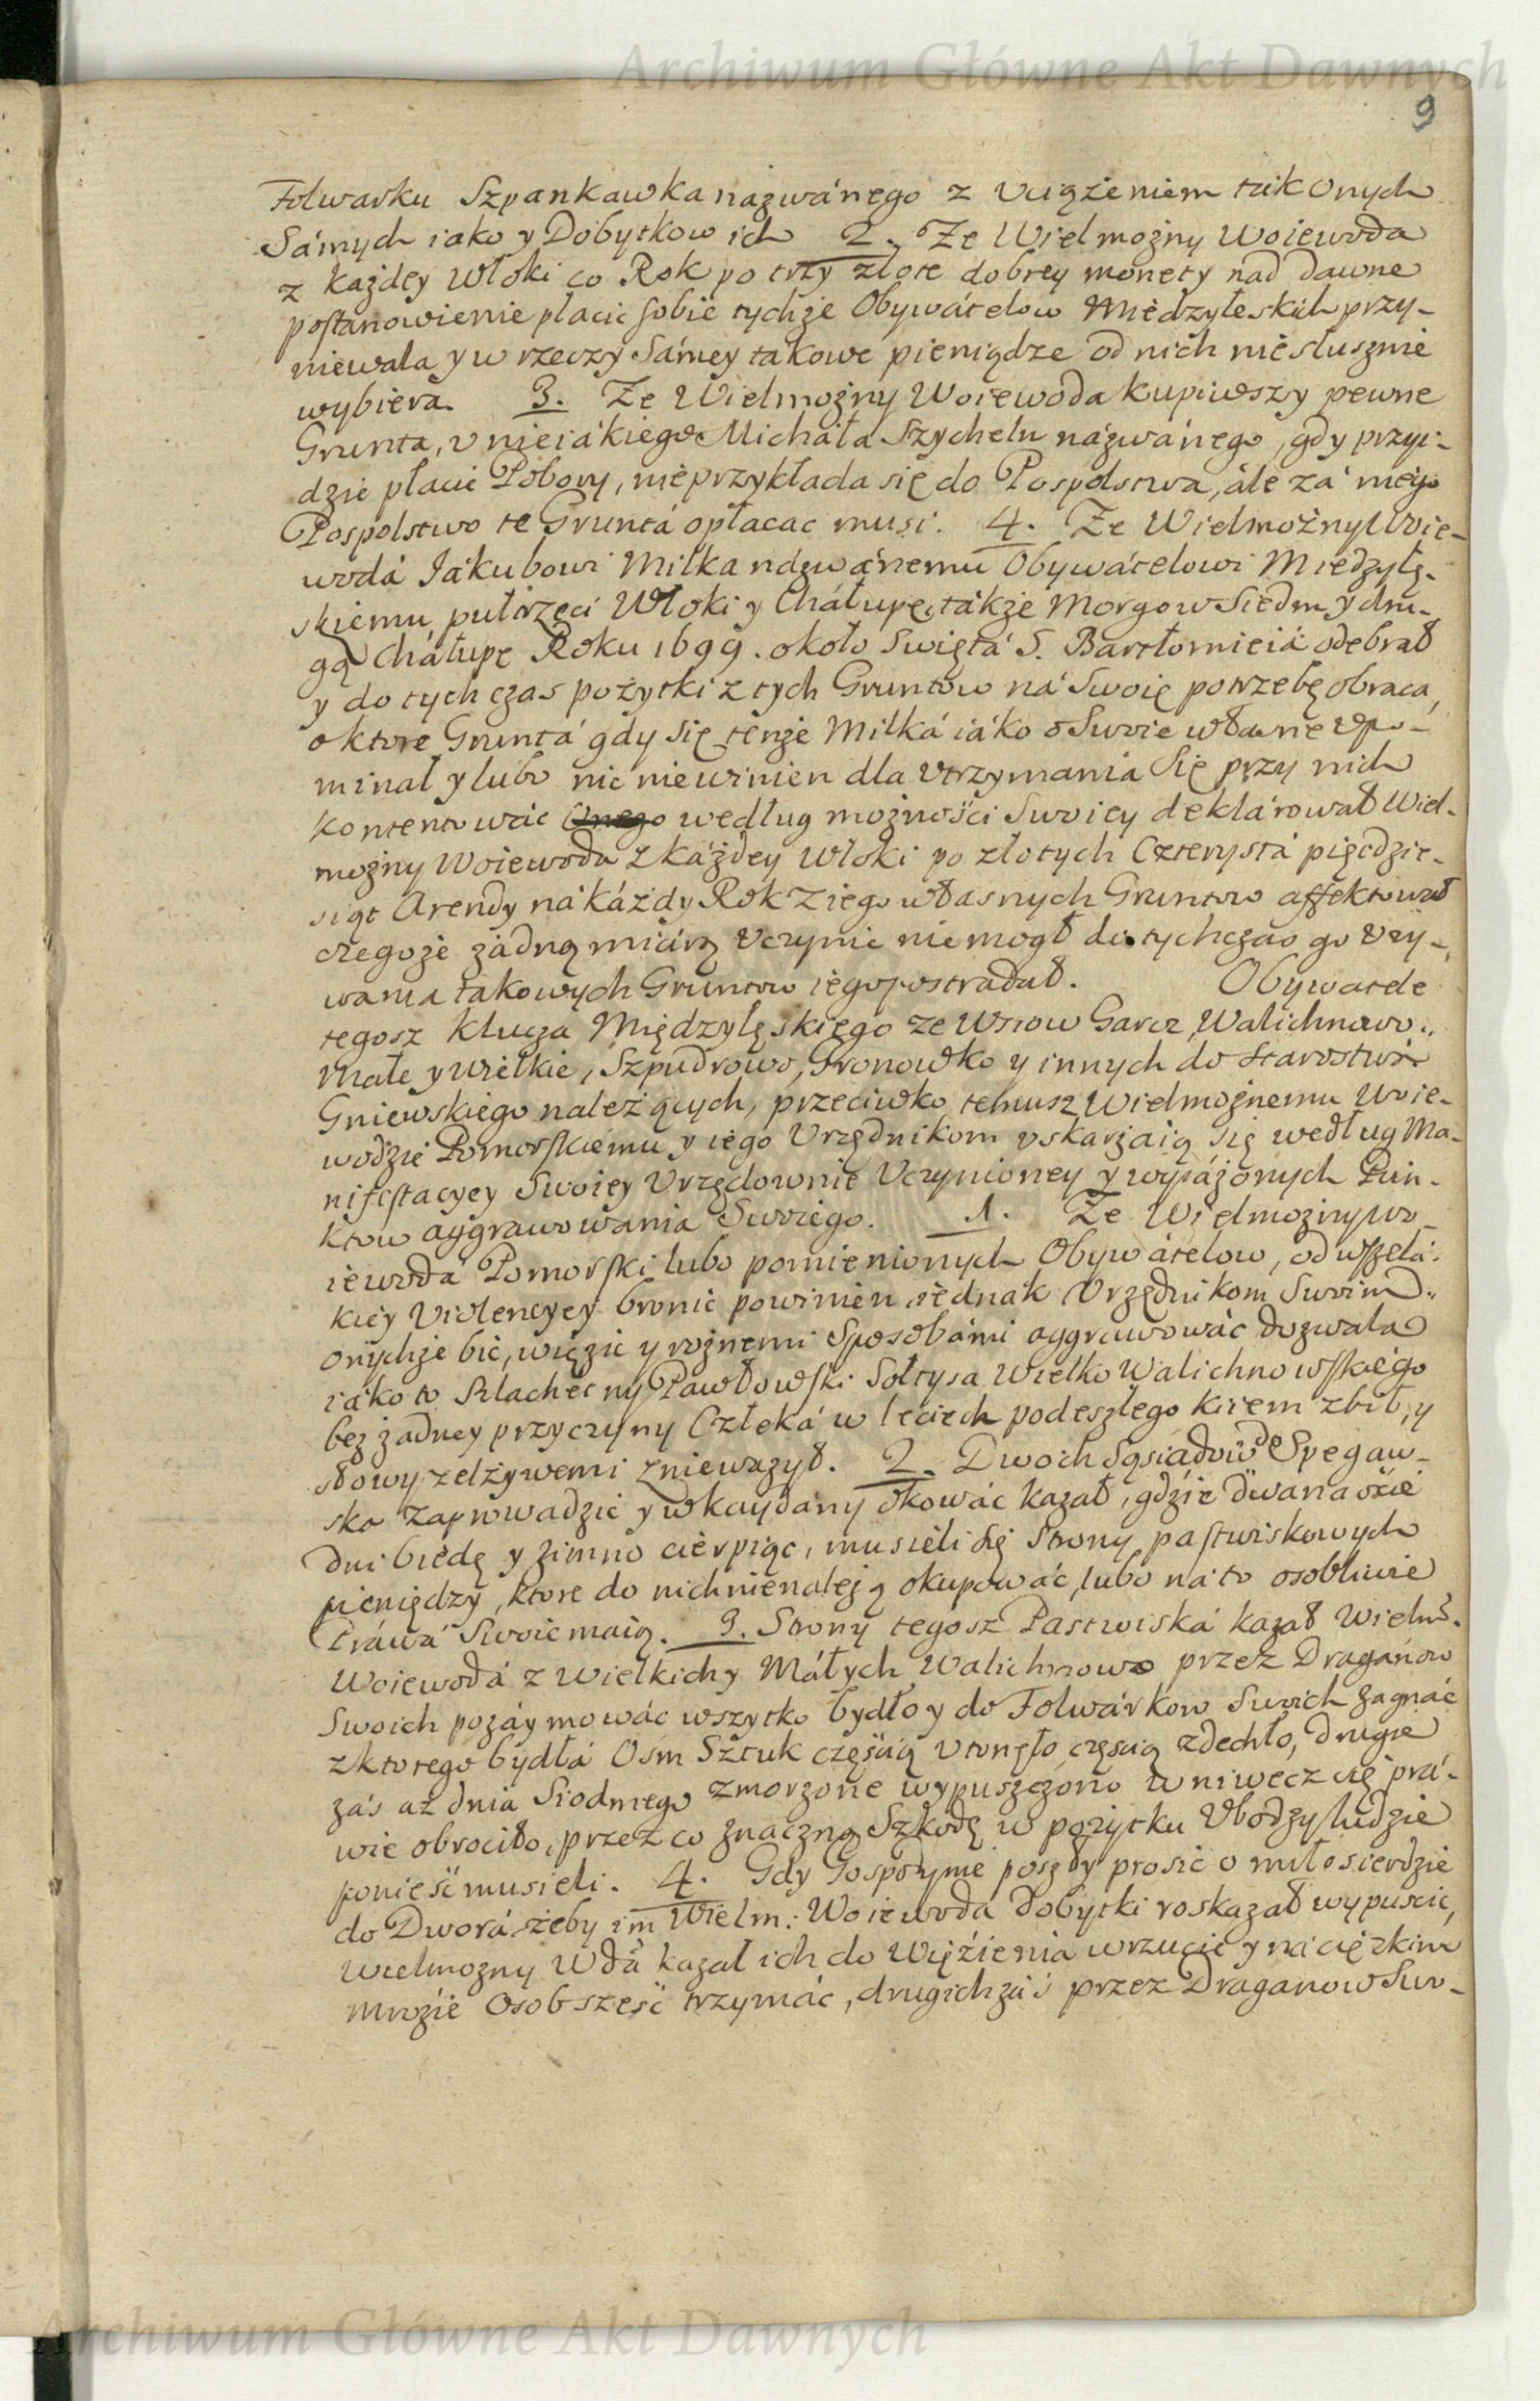 Archiwum Główne Akt Dawnych
9
Folwarku Szpankawka nazwánego z Uciążeniem tak Onych
Sámych iako y Dobytkow ich 2. Ze Wielmożny Woiewoda
z każdey Włoki co Rok po trzy złote dobrey monety nad dawne
postanowienie płacić sobie tychże Obywátelow Międzyłeskich przy-
niewala y w rzeczy Sámey takowe pieniądze od nich niesłusznie
wybiera. 3. Ze Wielmożny Woiewoda kupiwszy pewne
Grunta, u nieiákiego Micháła Szycheln názwánego, gdy przyi-
dzie płacić Pobory, nieprzykłada się do Pospolstwa, ále zá niego
Pospolstwo te Gruntá opłacac musi. 4. Ze Wielmożny Woie-
wodá Jákubowi Miłka názwánemu Obywátelowi Miedzyłę-
skiemu pułtrzeci Włoki y Cháłupę, tákże Morgow Siedm y dru-
gą Cháłupę Roku 1699. około Swiętá S. Bartłomieiá odebrał
y do tych czas pożytki z tych Gruntow ná Swoię potrzebę obraca,
o ktore Gruntá gdy się tenże Miłká iáko o Swoie własne upo-
minał y lubo nic niewinien dla utrzymania się przy nich
kontentowác Onego według możności Swoiey deklárował Wiel-
możny Woiewoda z káżdey Włoki po złotych Czterystá pięćdzie-
siąt Arendy ná káżdy Rok z iego własnych Gruntow affektował
czegoże żádną miárą uczynic niemogł do tychczas go uży-
wania takowych Gruntow iego postradał. Obywatele
tegosz klucza Międzyłęskiego ze Wsiow Garcz, Walichnowo
Małe y Wielkie, Szpudrowo, Gronowko y innych do Starostwá
Gniewskiego należących, przeciwko temusz Wielmożnemu Woie-
wodzie Pomorskiemu y iego Urzędnikom uskarżaią się według Ma-
nifestacyey Swoiey Urzędownie Uczynioney y wyráżonych Pun-
ktow aggrawowania Swoiego. 1. Ze Wielmożny Wo-
iewodá Pomorski lubo pomienionych Obywátelow, od wszelá-
kiey Violencyey bronić powinien, iednak Urzędnikom Swoim
onychże bić, więzić y rożnemi Sposobámi aggrawowác dozwala
iáko to Szlachetny Pawłowski Sołtysa Wielko Walichnowskiego
bez żadney przyczyny Człeká w leciech podeszłego kiiem zbił, y
słowy zelżywemi znieważył. 2. Dwoch Sąsiadow do Spegaw-
ska zaprowadzić y w kaydany okowác kazał, gdzie dwanaście
dni biedę y zimno cierpiąc, musieli się strony pastwiskowych
pieniędzy, ktore do nich nienależą okupowác, lubo na to osobliwie
Práwá Swoie maią. 3. Strony tegosz Pastwiská kazał Wielm.
Woiewodá z Wielkich y Máłych Walichnowo przez Dragánow
Swoich pozáymowác wszytko bydło y do Folwárkow Swoich zagnác
z ktorego bydłá Osm Sztuk częścią utonęło częscią zdechło, drugie
záś aż dnia Siodmego zmorzone wypuszczono wniwecz się prá-
wie obrociło, przez co znaczną Szkodę w pożytku Ubodzy ludzie
ponieść musieli. 4. Gdy Gospodynie poszły prosić o miłosierdzie
do Dworá żeby im Wielm: Woiewoda dobytki roskazał wypuscic,
Wielmożny Wdá kazał ich do Więźienia wrzucić y na cięzkim
Mrozie Osob sześć trzymác, drugich záś przez Draganow Swo-
Archiwum Główne Akt Dawnych